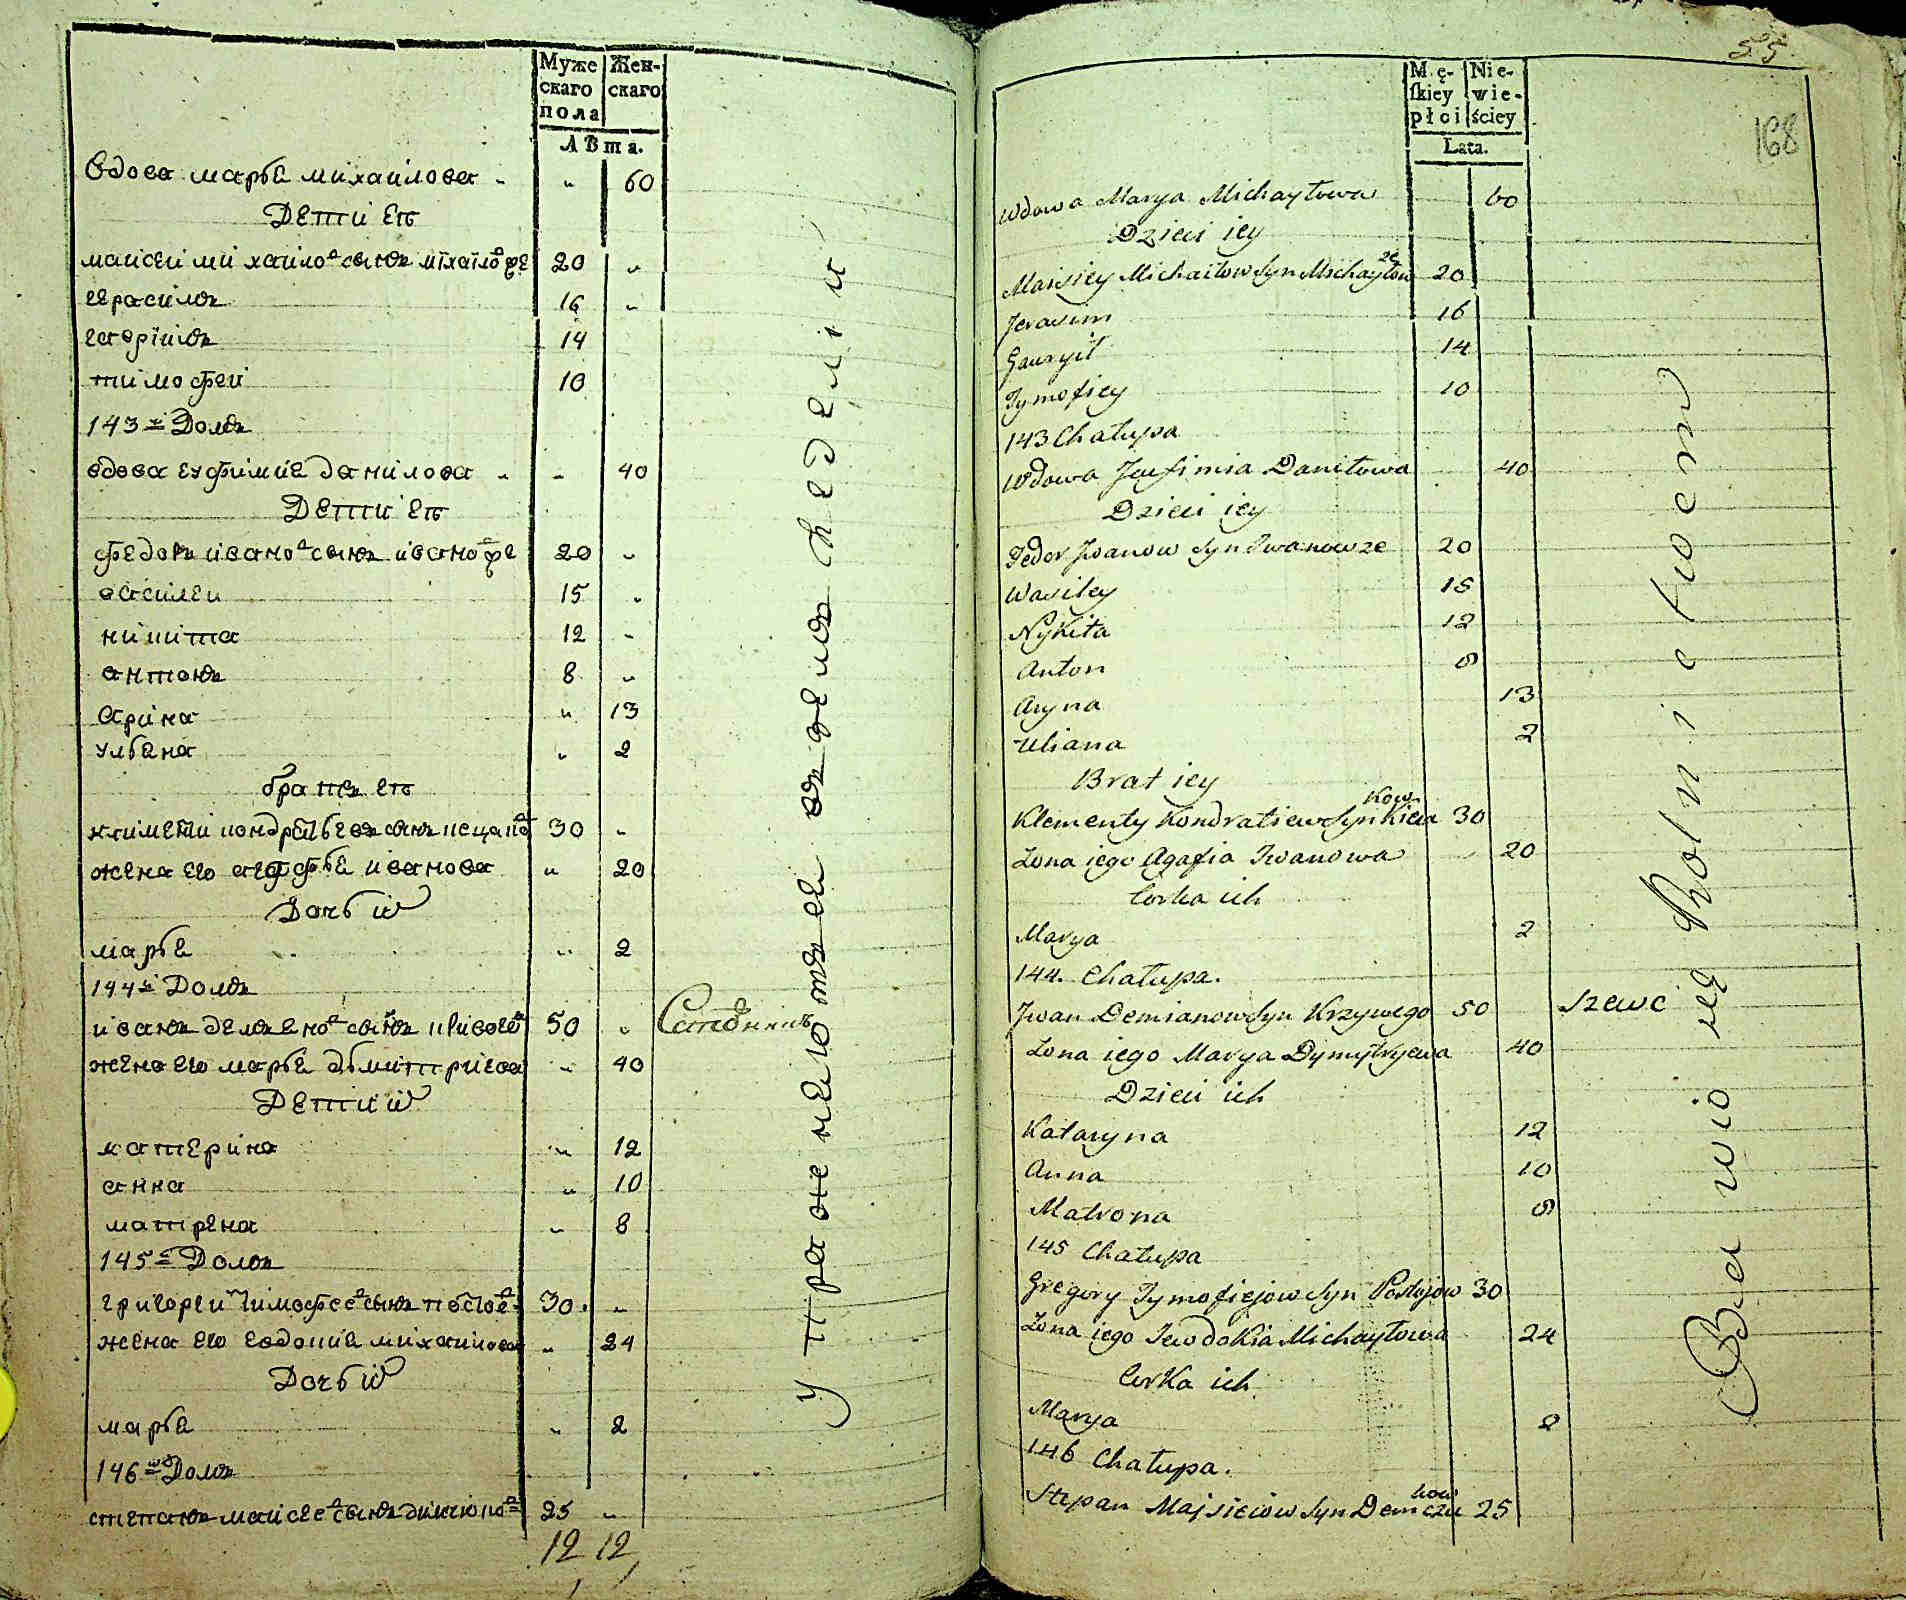 Муже Жен-
скаго скаго
пола
Лѣта.
вдова марья михаилова „ „ 60
Дети еѣ
маисеи михаилов сынъ михаиловже 20 „
герасимъ 16 „
гаврiилъ 14
тимофеи 10
143й Домъ
вдова еуфимия данилова „ „ 40
Дети еѣ
федоръ иванов сынъ ивановже 20 „
василеи 15 „
никита 12 „
антонъ 8 „
арина „ 13
ульяна „ 2
братъ еѣ
климетий кондратьевъ сынъ 30 „
жена его агафья иванова „ 20
Дочь их
марья „ 2
144й Домъ
иванъ демьянов сынъ кривого 50 „
жена его марья дьмитриева „ 40
Дети их
катерина „ 12
анна „ 10
матрена „ 8
145й Домъ
григореи тимофеев сынъ постоев 30. „
жена его евдокия михаилова „ 24
Дочь их
марья „ 2
146й Домъ
степанъ маисеев сынъ 25 „
12 12
упражнение имеютъ въ земледелии
55
168
Mę- Nie-
ſkiey wie-
płci ściey
Lata.
Wdowa Marya Michayłowa 60
Dzieci iey
Maisiey Michaiłow Syn Michayłow
że 20
Jerasim 16
Gawryił 14
Tymofiey 10
143 Chałupa
Wdowa Jeufimia Daniłowa 40
Dzieci iey
Fedor Iwanow Syn Iwanowże 20
Wasiley 15
Nykita 12
Anton 8
Aryna 13
Uliana 2
Brat iey
Klementy Kondratiew Syn Kieca
kow 30
Zona iego Agafia Iwanowa 20
Corka ich
Marya 2
144. Chałupa.
Iwan Demianow Syn Krzywego 50 Szewc
Zona iego Marya Dymytryewa 40
Dzieci ich
Kataryna 12
Anna 10
Matrona 8
145 Chałupa
Gregory Tymofiejow Syn Postojow 30
Zona iego Jewdokia Michayłowa 24
Corka ich
Marya 2
146 Chałupa.
Stepan Majsieiow Syn Demczu
kow 25
Bawio się Rolnictwem